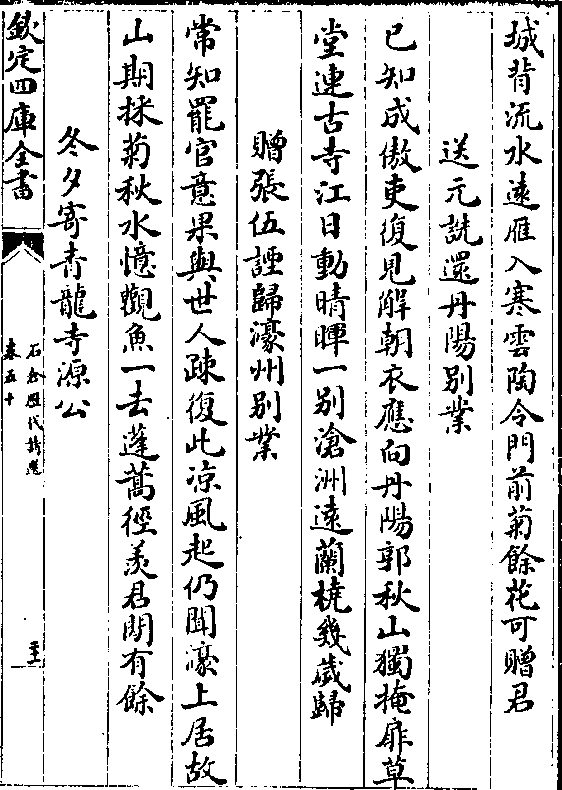 城背流水遠雁入寒雲陶令門前菊餘花可贈君
送元詵還丹陽别業
已知成傲吏復見解朝衣應向丹陽郭秋山獨掩扉草
堂連古寺江日動晴暉一别滄洲遠蘭橈幾歳歸
贈張伍諲歸濠州别業
常知罷官意果與世人疎復此凉風起仍聞濠上居故
山期採菊秋水憶觀魚一去蓬蒿徑羨君閒有餘
冬夕寄青龍寺源公
欽定四庫全書
石倉歴代詩選
卷五十